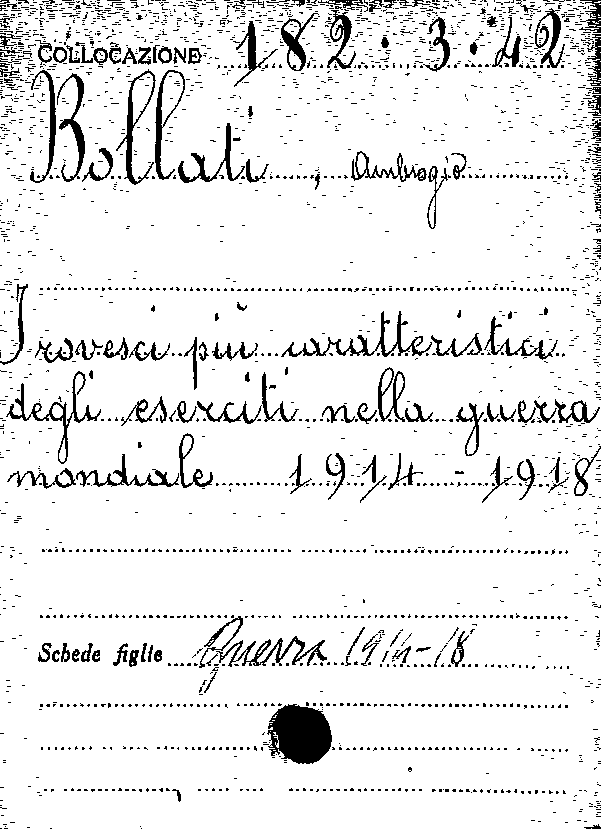 COLLOCAZIONE 182.3.42
Bollati, Ambrogio
I rovesci più caratteristici
degli eserciti nella guerra
mondiale 1914-1918
Schede figlie Guerra 1914-18